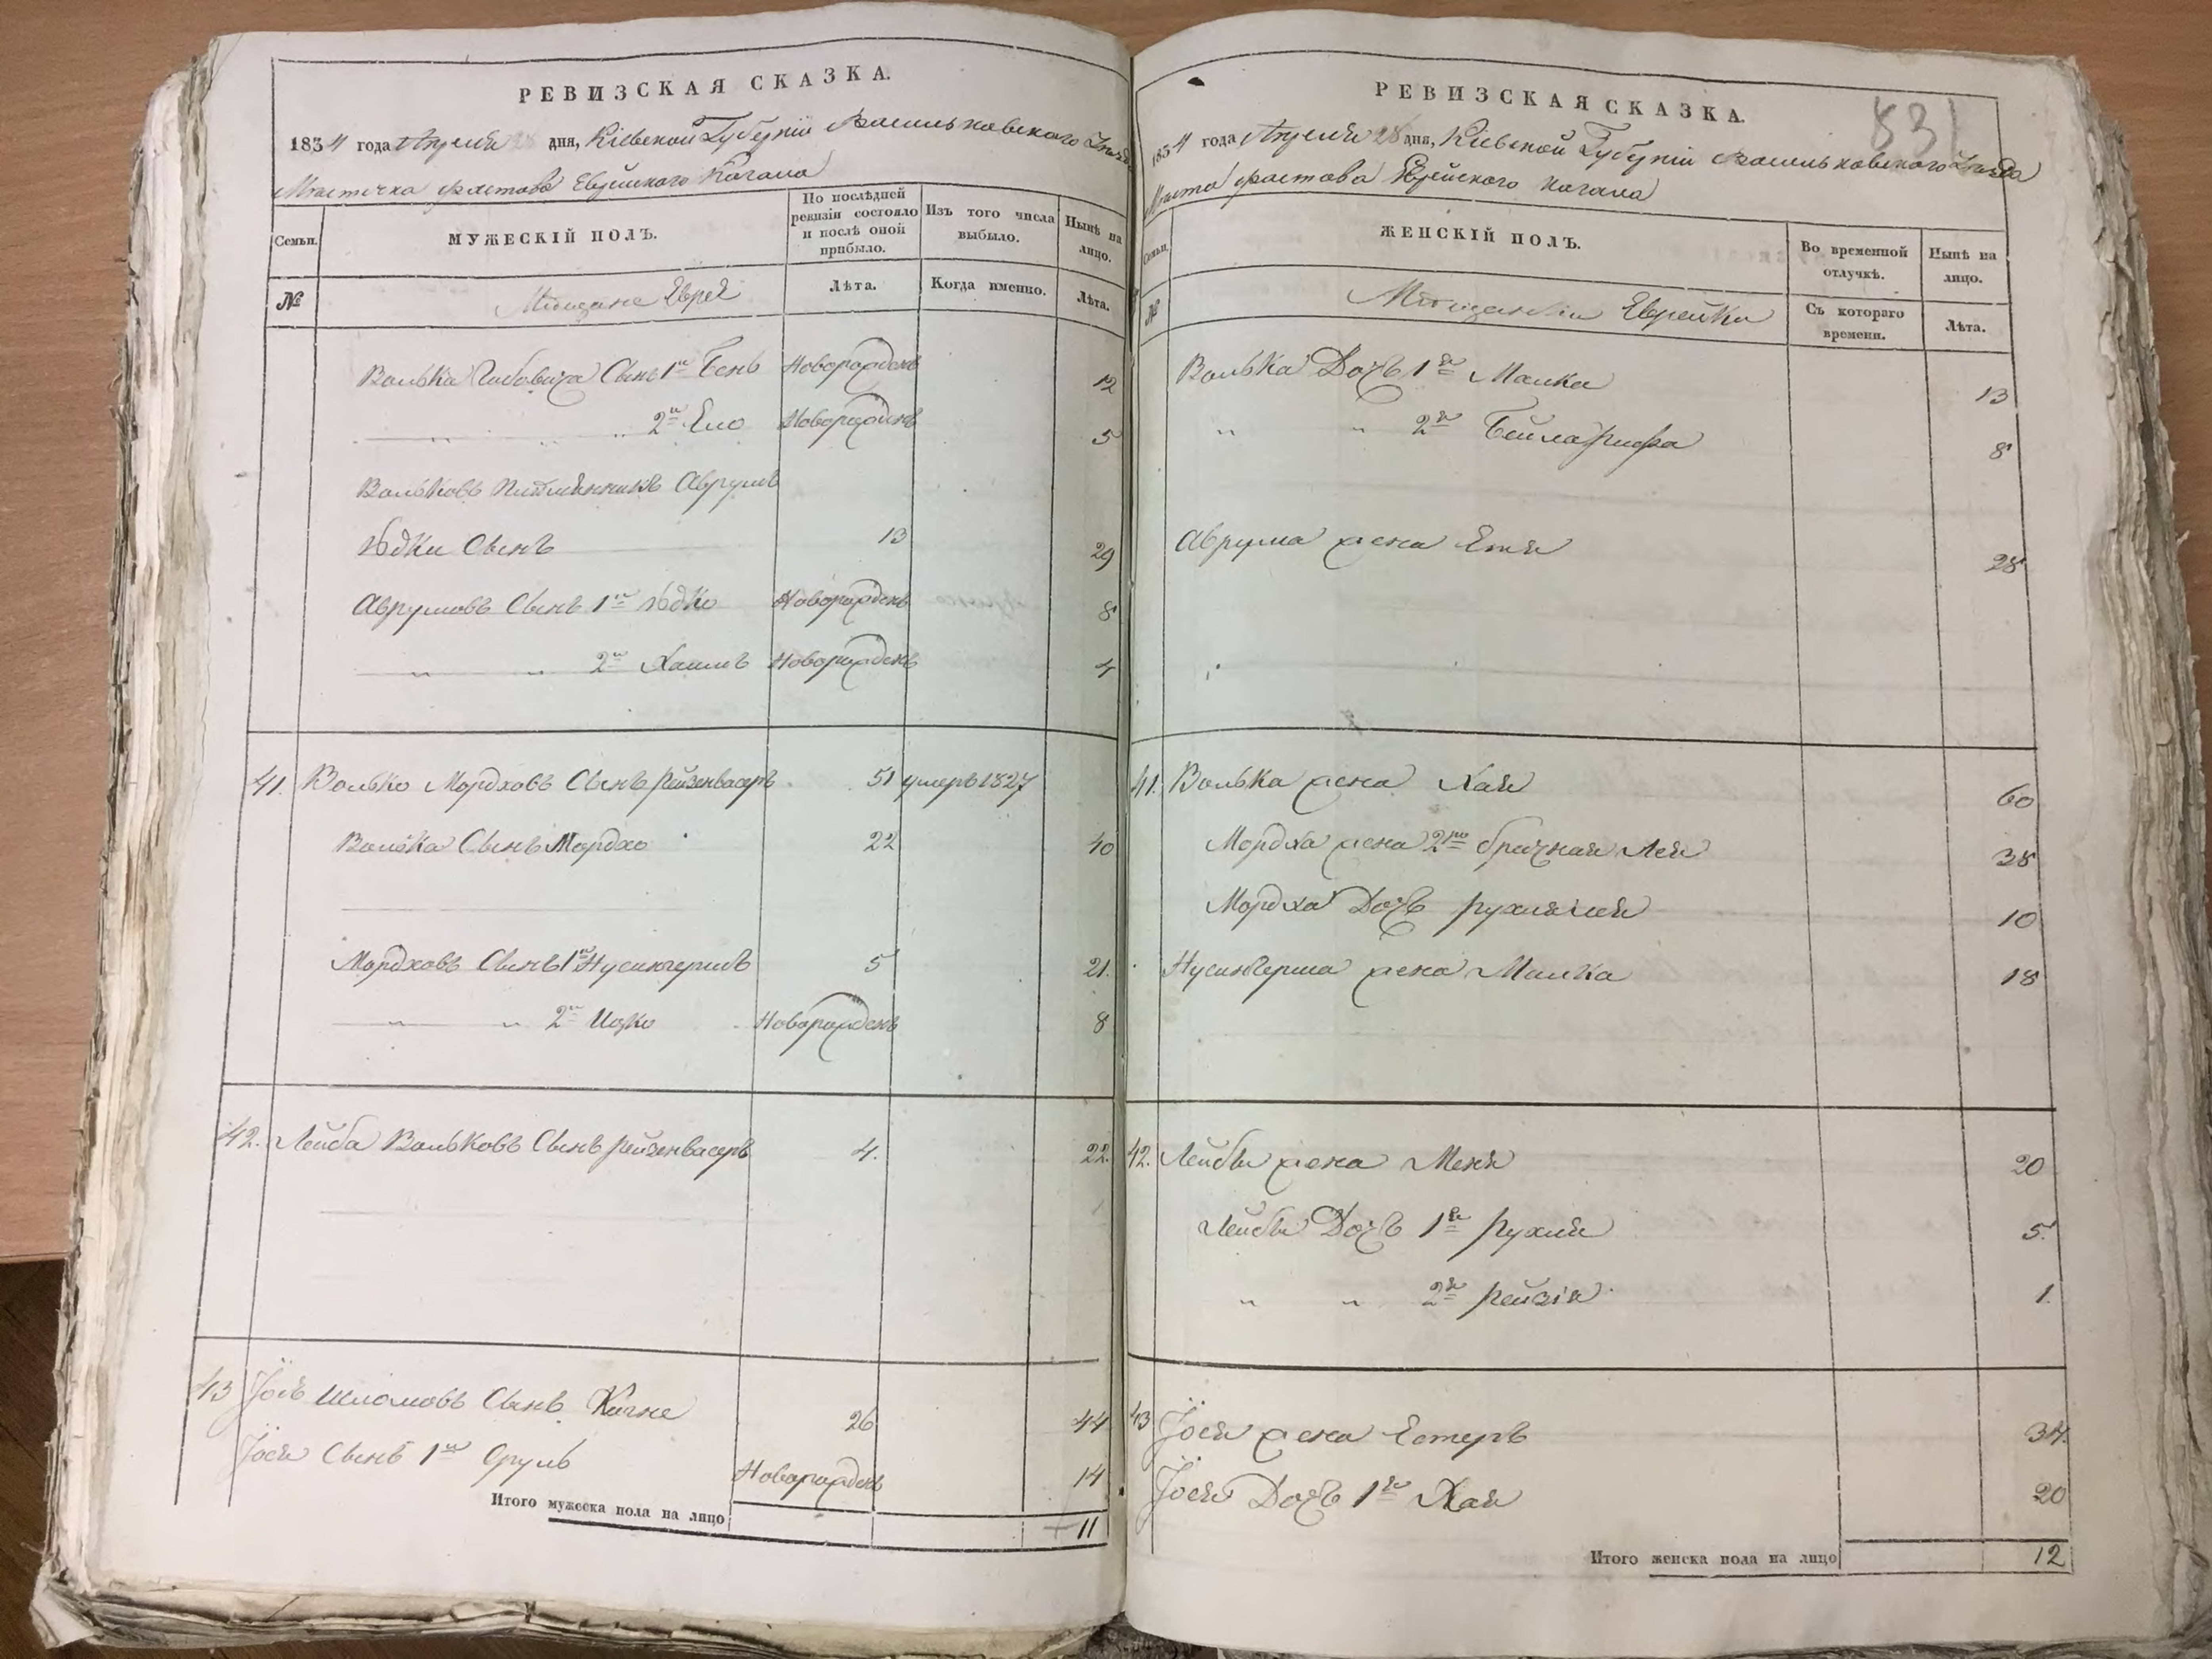 РЕВИЗСКАЯ СКАЗКА.
1834 года Апреля 28 дня, Кіевской Губерніи Васильковскаго Уезда
Мястечка Фастова Еврейского Кагала
Семьи.
МУЖЕСКІЙ ПОЛЪ.
По послѣдней ревизіи состояло и послѣ оной прибыло.
Изъ того числа выбыло.
Нынѣ на лицо.
№
Мѣщане Евреи
Лѣта.
Когда именно.
Лѣта.
Волька Сынъ 1й Бень Новорожденъ 12
" " 2й Ело Новорожденъ 5
Вольковъ Племянникъ Аврумъ
Юдки Сынъ 13 29
Аврумовъ Сынъ 1й Юдко Новорожденъ 8
" " 2й Хаимъ Новорожденъ 4
41. Волько Мордховъ Сынъ Рейзенвасеръ 51 умеръ 1827
Волька Сынъ Мордхо 22 40
Мордховъ Сынъ 1й Нусингершъ 5 21.
" " 2й Ицко Новорожденъ 8
42. Лейба Вольковъ Сынъ Рейзенвасеръ 4. 22.
43 Іось Шломовъ Сынъ 26 44
Іося Сынъ 1й Сруль Новорожденъ 14
Итого мужеска пола на лицо 11
831
РЕВИЗСКАЯ СКАЗКА.
1834 года Апреля 28 дня, Кіевской Губерніи Васильковского Уезда
Места Фастова Еврейского Кагала
Семьи.
ЖЕНСКІЙ ПОЛЪ.
Во временной отлучкѣ.
Нынѣ на лицо.
№
Мѣщанки Еврейки
Съ котораго времени.
Лѣта.
Волька Дочь 1я Малка 13
" " 2я Бейларифа 8
Аврума жена Етя 28
41. Волька жена Хая 60
Мордха жена 2го брачная Лея 38
Мордха Дочь Рухлялея 10
Нусингерша жена Малка 18
42. Лейбы жена Меня 20
Лейбы Дочь 1я Рухля 5.
" " 2я Рейзія 1.
43 Іося жена Естеръ 34.
Іося Дочь 1я Хая 20
Итого женска пола на лицо 12